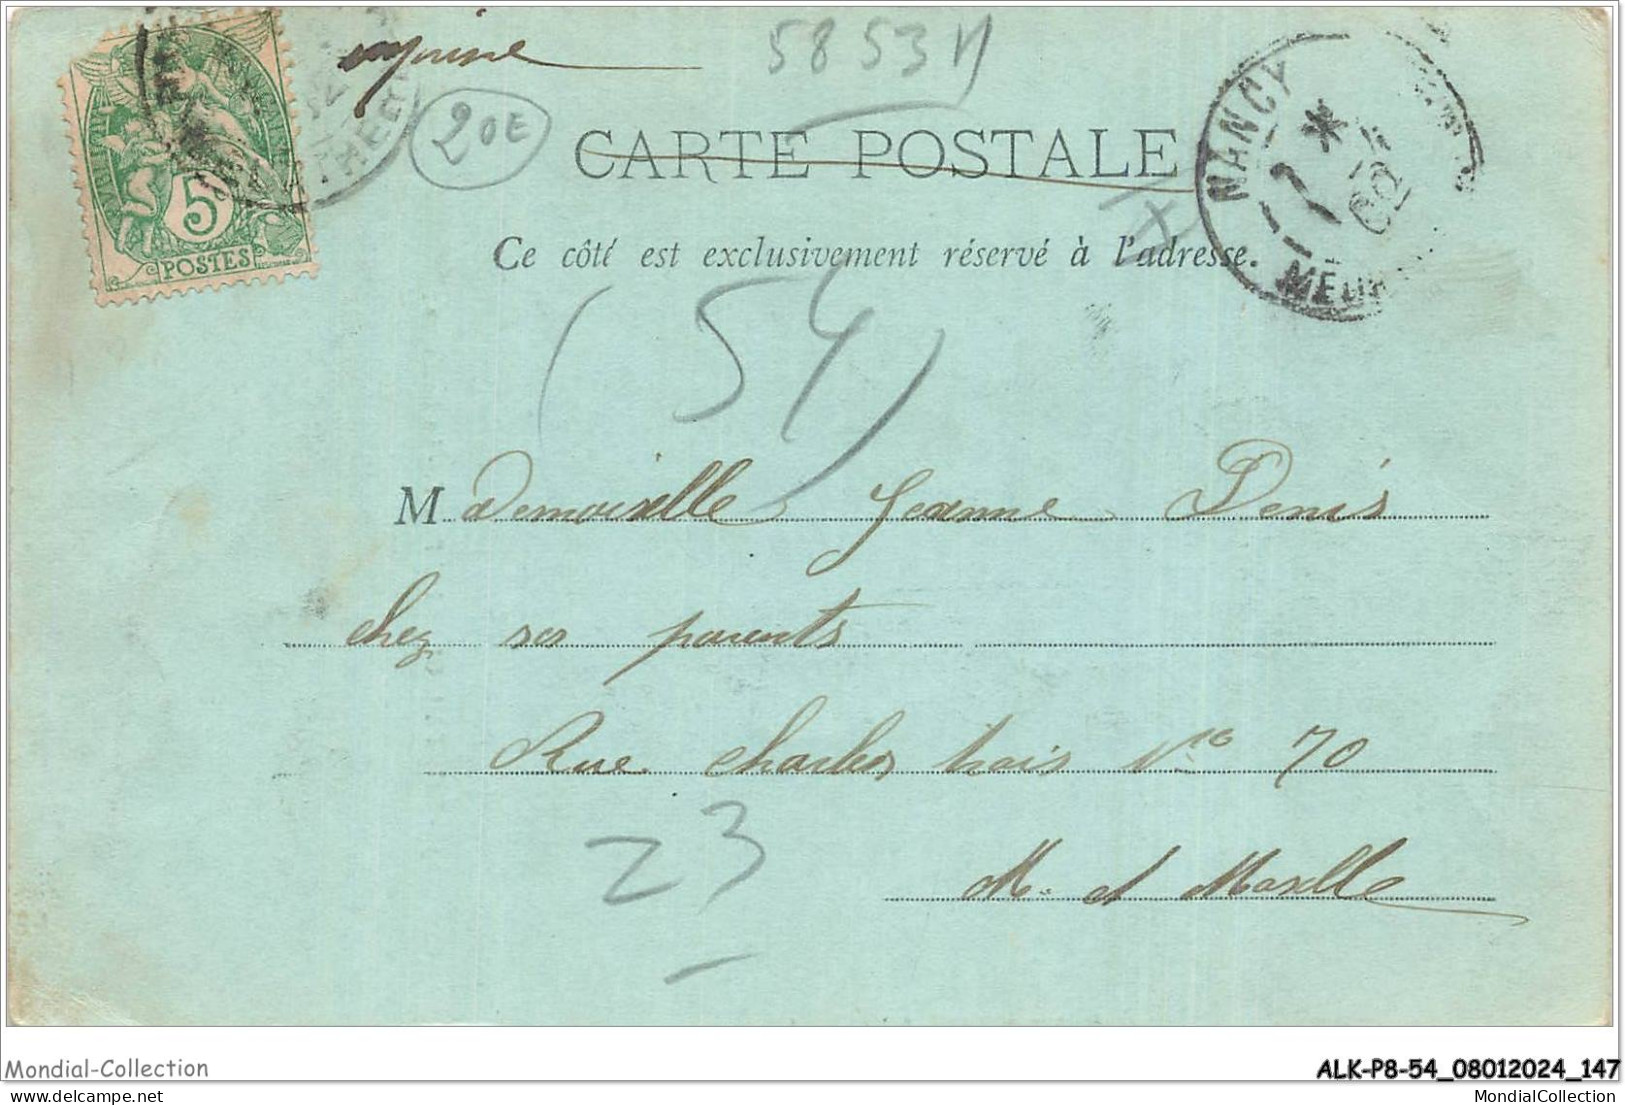 58 53 N
20E
CARTE POSTALE
NANCY
02
5
POSTES
Ce côté est exclusivement réservé à l'adresse.
(54)
Mademoiselle Jeanne Denis
chez ses parents
Rue Charles trois No 70
23
M. et Moselle
Mondial-Collection
ALK-P8-54_08012024_147
delcampe.net
MondialCollection